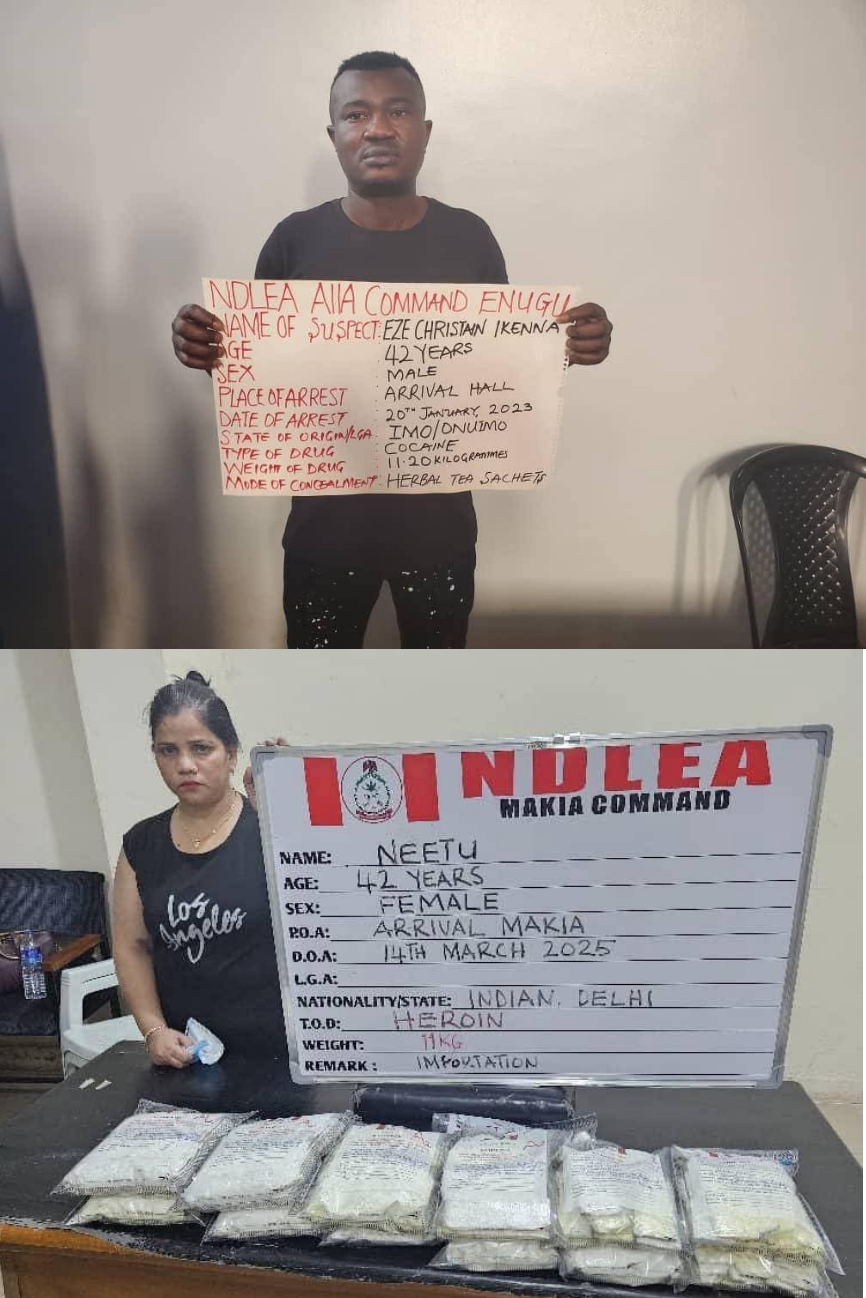 NDLEA AIIA COMMAND ENUGU
NAME OF SUSPECT: EZE CHRISTAIN IKENNA
AGE : 42 YEARS
SEX : MALE
PLACE OF ARREST : ARRIVAL HALL
DATE OF ARREST : 20TH JANUARY, 2023
STATE OF ORIGIN/LGA : IMO/ONUIMO
TYPE OF DRUG : COCAINE
WEIGHT OF DRUG : 11.20 KILOGRAMMES
MODE OF CONCEALMENT : HERBAL TEA SACHETS
NDLEA
MAKIA COMMAND
NAME: NEETU
AGE: 42 YEARS
SEX: FEMALE
P.O.A: ARRIVAL MAKIA
D.O.A: 14TH MARCH 2025
L.G.A:
NATIONALITY/STATE: INDIAN. DELHI
T.O.D: HEROIN
WEIGHT: 11KG
REMARK : IMPORTATION
Los
Angeles